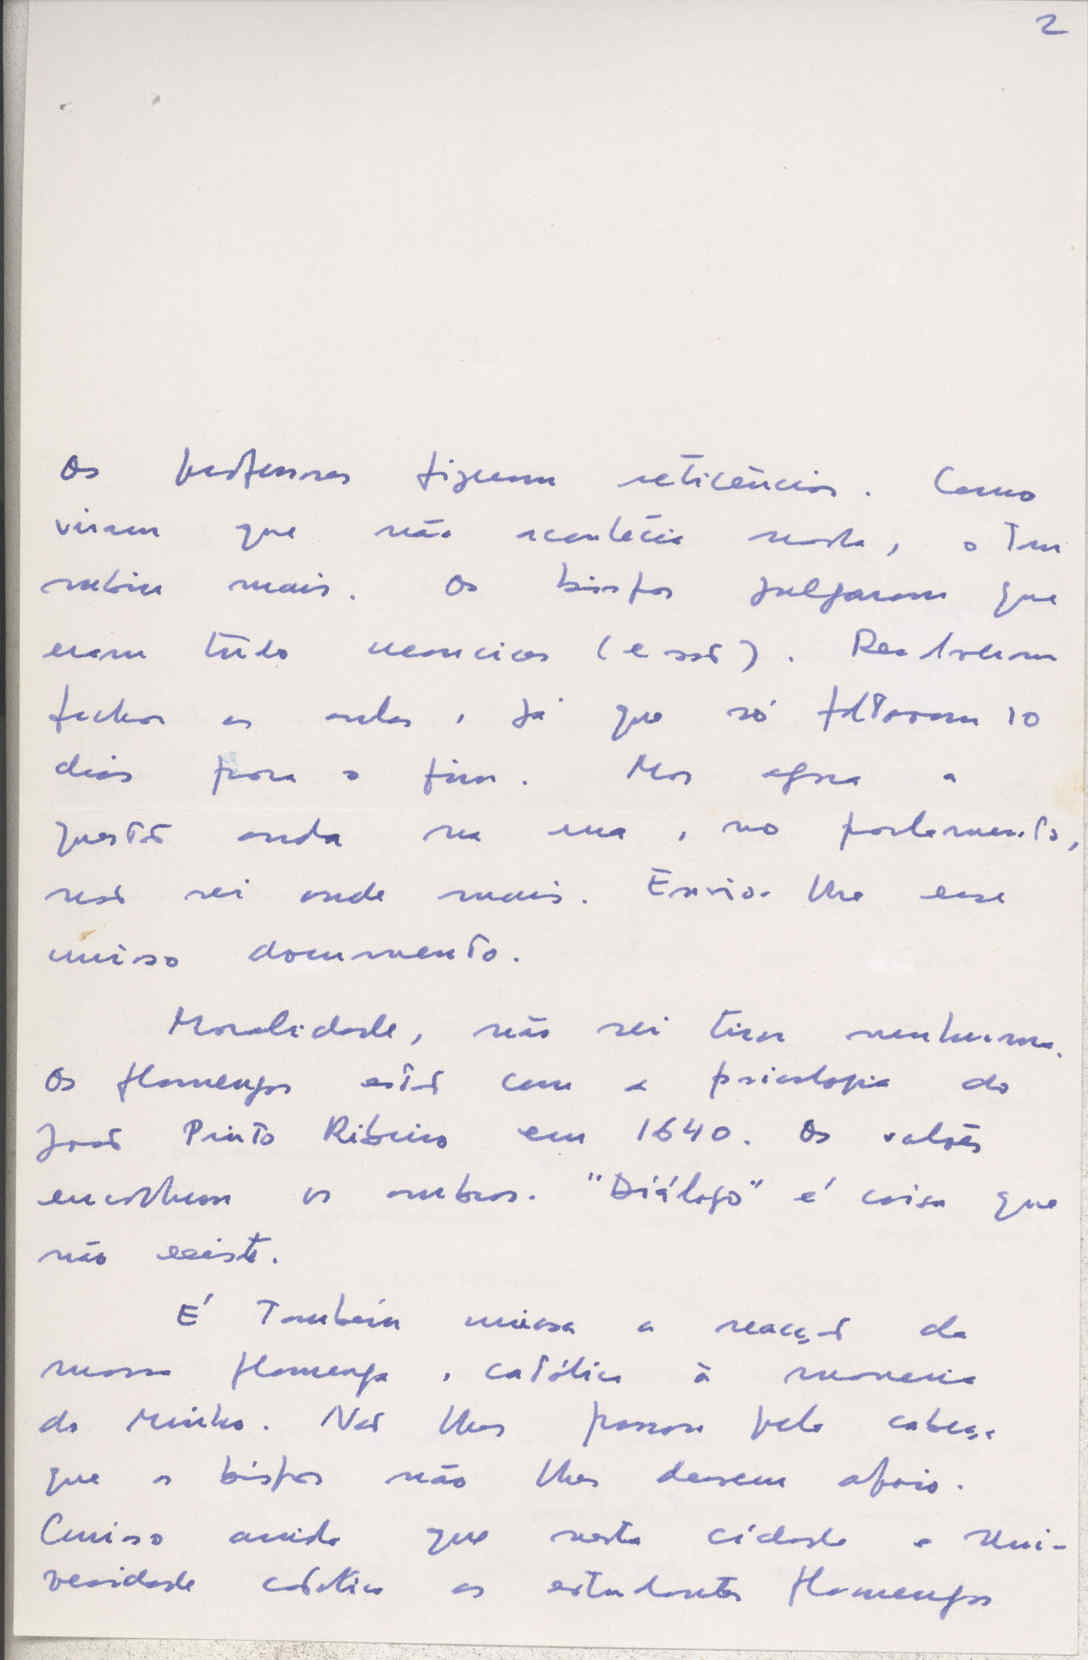 2
Os professores fizeram reticências. Como
viram que não acontecia nada, o tom
subiu mais. Os bispos julgaram que
eram tudo (e são). Resolveram
fechar as aulas, já que só faltavam 10
dias para o fim. Mas agora a
questão anda na rua, no parlamento,
não sei onde mais. Envio-lhe esse
curioso documento.
Moralidade, não sei tirar nenhuma.
Os flamengos estão com a psicologia do
João Pinto Ribeiro em 1640. Os valões
encolhem os ombros. "Diálogo" é coisa que
não existe.
É também curiosa a reacção da
massa flamenga, católica à maneira
do Minho. Não lhes passou pela cabeça
que os bispos não lhes dessem apoio.
Curioso ainda que nesta cidade e Uni-
versidade católica os estudantes flamengos